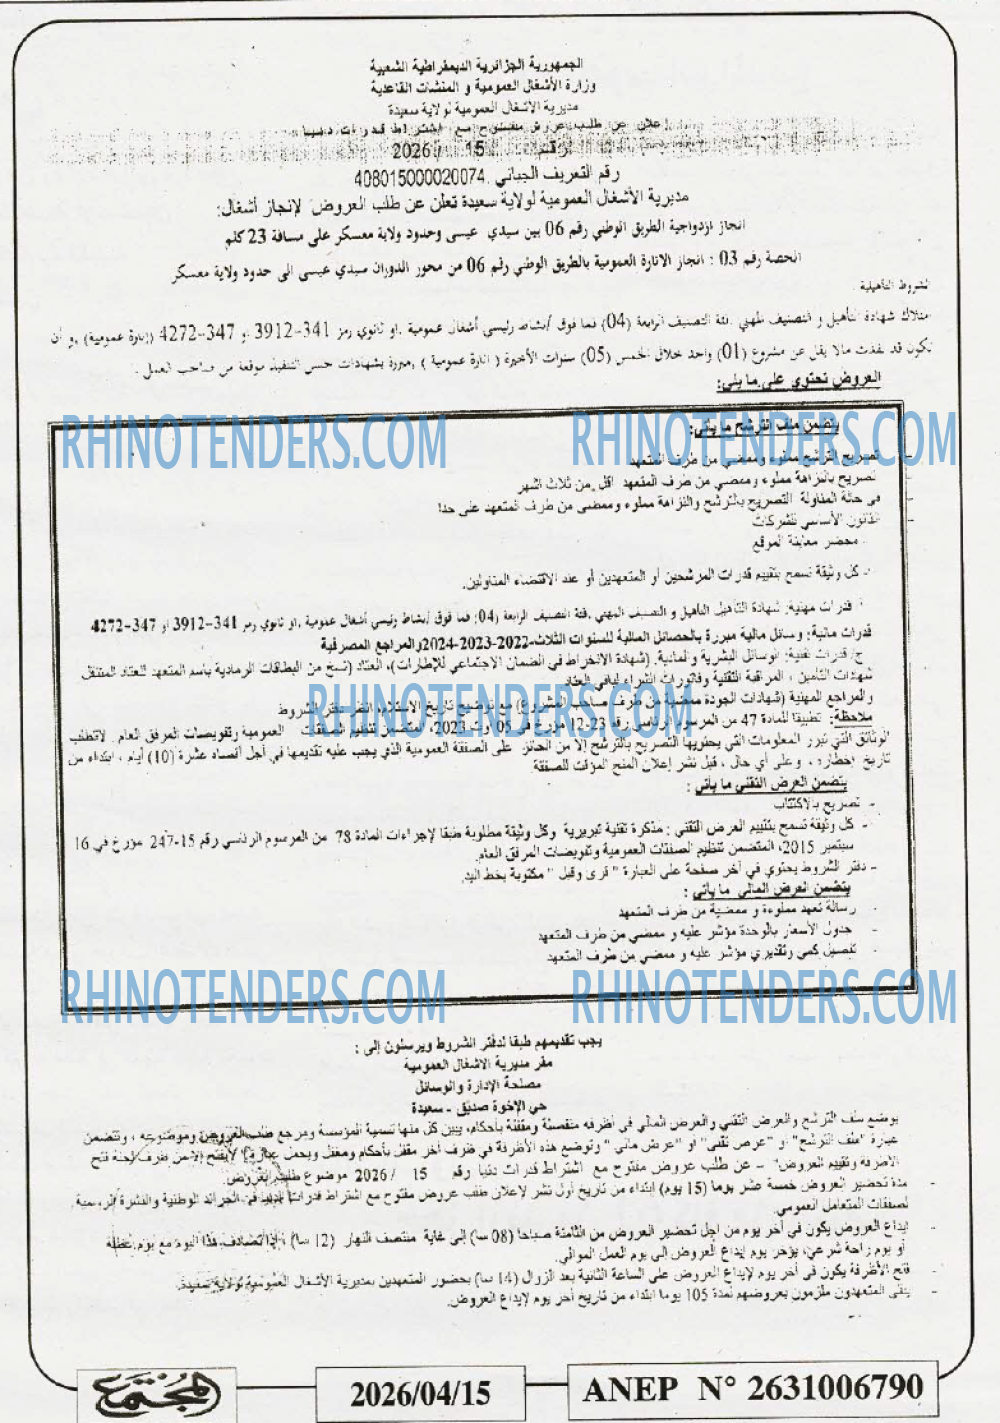 الجمهورية الجزائرية الديمقراطية الشعبية
وزارة الأشغال العمومية و المنشات القاعدية
مديرية الاشغال العمومية لولاية سعيدة
إعلان عن طلب عروض مفتوح مع اشتراط قدرات دنيا
رقم 15 / 2026
رقم التعريف الجبائي .408015000020074
مديرية الأشغال العمومية لولاية سعيدة تعلن عن طلب العروض لإنجاز أشغال:
انجاز ازدواجية الطريق الوطني رقم 06 بين سيدي عيسى وحدود ولاية معسكر على مسافة 23 كلم
الحصة رقم 03 : انجاز الانارة العمومية بالطريق الوطني رقم 06 من محور الدوران سيدي عيسى الى حدود ولاية معسكر
الشروط التأهيلية :
امتلاك شهادة التأهيل و التصنيف المهني .فئة التصنيف الرابعة (04) فما فوق /نشاط رئيسي أشغال عمومية .او ثانوي رمز 341-3912 او 347-4272 (إنارة عمومية) ,و أن
تكون قد نفذت مالا يقل عن مشروع (01) واحد خلال الخمس (05) سنوات الأخيرة ( انارة عمومية ) ,مبررة بشهادات حسن التنفيذ موقعة من صاحب العمل .
العروض تحتوي على ما يلي:
يتضمن ملف الترشح ما يأتي:
تصريح بالترشح مملوء وممضي من طرف المتعهد
تصريح بالنزاهة مملوء وممضي من طرف المتعهد اقل من ثلاث اشهر
في حالة المناولة التصريح بالترشح والنزاهة مملوء وممضى من طرف المتعهد على حدا
القانون الأساسي للشركات
محضر معاينة الموقع
- كل وثيقة تسمح بتقييم قدرات المرشحين أو المتعهدين أو عند الاقتضاء المناولين.
قدرات مهنية: شهادة التأهيل التأهيل و التصنيف المهني .فئة التصنيف الرابعة (04) فما فوق /نشاط رئيسي أشغال عمومية .او ثانوي رمز 341-3912 او 347-4272
قدرات مالية: وسائل مالية مبررة بالحصائل المالية للسنوات الثلاث-2022-2023-2024والمراجع المصرفية
ج/ قدرات تقنية: الوسائل البشرية والمادية. (شهادة الانخراط في الضمان الاجتماعي للإطارات)، العتاد (نسخ من البطاقات الرمادية باسم المتعهد للعتاد المتنقل
شهادات التأمين ، المراقبة التقنية وفاتورات الشراء لباقي العتاد
والمراجع المهنية (شهادات الجودة ممضية من طرف صاحب المشروع) مع توضيح تاريخ الاستلام. دفتر الشروط
ملاحظة: تطبيقا للمادة 47 من المرسوم الرئاسي رقم 23-12 مؤرخ في 05 اوت 2023، المتضمن تنظيم الصفقات العمومية وتفويضات المرفق العام لاتطلب
الوثائق التي تبرر المعلومات التي يحتويها التصريح بالترشح إلا من الحائز على الصفقة العمومية الذي يجب عليه تقديمها في أجل أقصاه عشرة (10) أيام ، ابتداء من
تاريخ إخطاره ، وعلى أي حال ، قبل نشر إعلان المنح المؤقت للصفقة
يتضمن العرض التقني ما يأتي :
- تصريح بالاكتتاب
- كل وثيقة تسمح بتقييم العرض التقني : مذكرة تقنية تبريرية وكل وثيقة مطلوبة طبقا لإجراءات المادة 78 من المرسوم الرئاسي رقم 15-247 مؤرخ في 16
سبتمبر 2015، المتضمن تنظيم لصفقات العمومية وتفويضات المرفق العام.
- دفتر الشروط يحتوي في آخر صفحة على العبارة " قرئ وقبل " مكتوبة بخط اليد.
يتضمن العرض المالي ما يأتي :
- رسالة تعهد مملوءة و ممضية من طرف المتعهد
- جدول الأسعار بالوحدة مؤشر عليه و ممضي من طرف المتعهد
- تفصيل كمي وتقديري مؤشر عليه و ممضي من طرف المتعهد
يجب تقديمهم طبقا لدفتر الشروط ويرسلون إلى :
مقر مديرية الاشغال العمومية
مصلحة الإدارة والوسائل
حي الإخوة صديق - سعيدة
يوضع ملف الترشح والعرض التقني والعرض المالي في أظرفة منفصلة ومقفلة بأحكام، يبين كل منها تسمية المؤسسة ومرجع طلب العروض وموضوعه ، وتتضمن
عبارة "ملف الترشح" أو "عرض تقني" أو "عرض مالي" وتوضع هذه الأظرفة في ظرف آخر مقفل بأحكام ومغفل ويحمل عبارة" لا يفتح إلا من طرف لجنة فتح
الأظرفة وتقييم العروض" - عن طلب عروض مفتوح مع اشتراط قدرات دنيا رقم 15 / 2026 موضوع طلب العروض.
- مدة تحضير العروض خمسة عشر يوما (15 يوم) ابتداء من تاريخ أول نشر لإعلان طلب عروض مفتوح مع اشتراط قدرات دنيا في الجرائد الوطنية والنشرة الرسمية
لصفقات المتعامل العمومي.
- إيداع العروض يكون في آخر يوم من اجل تحضير العروض من الثامنة صباحا (08 سا) إلى غاية منتصف النهار (12 سا) ، إذا تصادف هذا اليوم مع يوم عطلة
أو يوم راحة شرعي، يؤخر يوم إيداع العروض إلى يوم العمل الموالي.
- فتح الأظرفة يكون في آخر يوم لإيداع العروض على الساعة الثانية بعد الزوال (14 سا) بحضور المتعهدين بمديرية الأشغال العمومية لولاية سعيدة.
- يبقى المتعهدون ملزمون بعروضهم لمدة 105 يوما ابتداء من تاريخ آخر يوم لإيداع العروض.
RHINOTENDERS.COM
RHINOTENDERS.COM
RHINOTENDERS.COM
RHINOTENDERS.COM
RHINOTENDERS.COM
المجتمع
2026/04/15
ANEP N° 2631006790